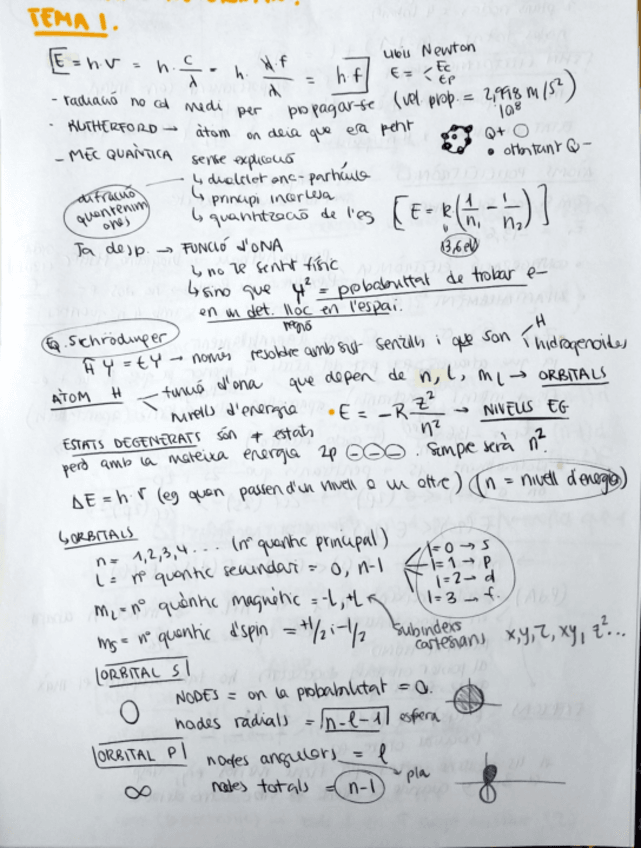 TEMA 1.
E = h·ν = h· c/λ = h· λ·f/λ = h·f
E = < Ec Ep
- radiació no cal medi per propagar-se (vel prop. = 2,998 m/s²)
10⁸
- RUTHERFORD → àtom on deia que era petit
Q+
Q-
- MEC QUÀNTICA sense explicació
↳ dualitat ona-partícula
↳ principi incertesa
↳ quantització de l'eg
difracció
ones
[E = R·(1/n₁ - 1/n₂)]
13,6eV
Ja desp. → FUNCIÓ D'ONA
↳ no té sentit físic
↳ sino que Ψ² = probabilitat de trobar e-
en un det. lloc en l'espai.
regió
Eq. Schrödinger
ĤΨ = EΨ → només resoldre amb sist. senzills i que son < H hidrogenoides
ÀTOM H
funció d'ona que depen de n, l, ml → ORBITALS
nivells d'energia • E = -R z²/n² → NIVELLS EG
ESTATS DEGENERATS són + estats
però amb la mateixa energia 2p ⊖⊖⊖. Sempre serà n².
ΔE = h·ν (eg quan passen d'un nivell a un altre) (n = nivell d'energia)
↳ ORBITALS
n = 1,2,3,4.... (nº quàntic principal)
L = nº quàntic secundari = 0, n-1
l=0 → s
l=1 → p
l=2 → d
l=3 → f
ml = nº quàntic magnètic = -l, +l
subíndexs cartesians x,y,z, xy, z²...
ms = nº quàntic d'spin = +1/2 i -1/2
ORBITAL S
NODES = on la probabilitat = 0.
nodes radials = n-l-1 esfera
ORBITAL P
nodes angulars = l
pla
nodes totals = n-1